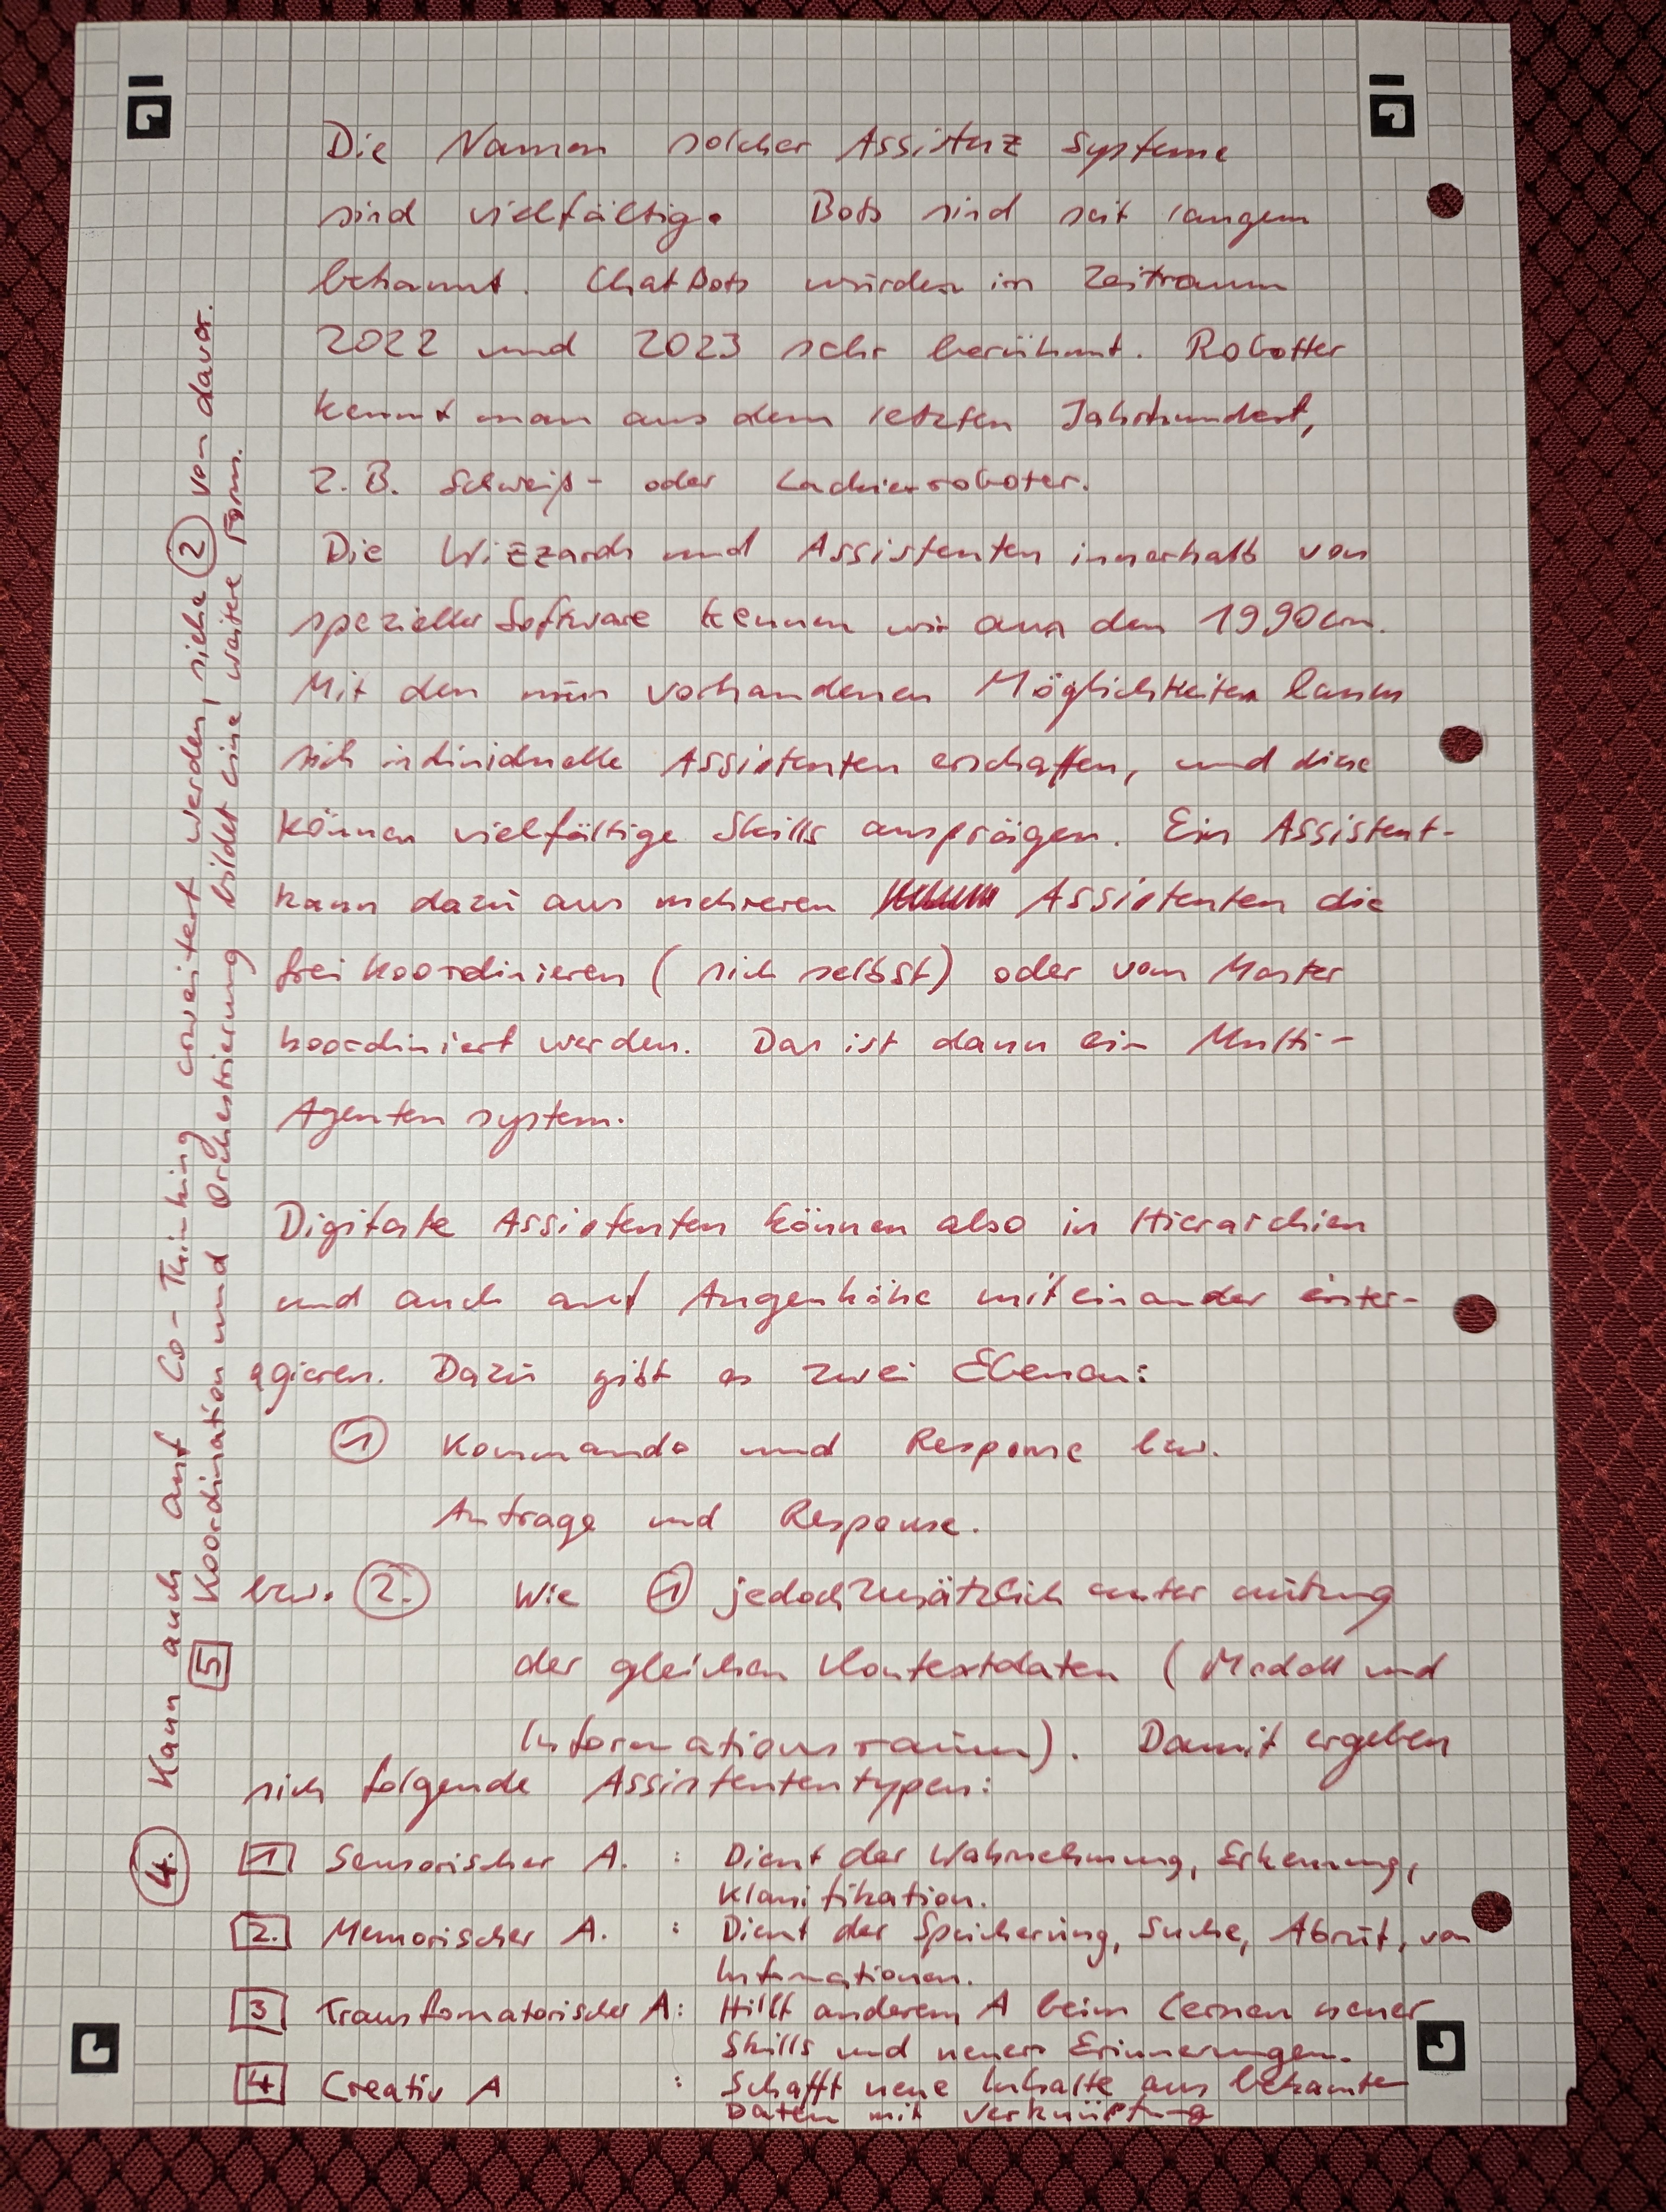 Die Namen solcher Assistenz Systeme
sind vielfältig. Bots sind seit langem
bekannt. ChatBots würden im Zeitraum
2022 und 2023 sehr berühmt. Robotter
kennt man aus dem letzten Jahrhundert,
z.B. Schweiß- oder Lackierroboter.
Die Wizzards und Assistenten innerhalb von
spezieller Software kennen wir aus den 1990ern.
Mit den nun vorhandenen Möglichkeiten lassen
sich individuelle Assistenten erschaffen, und diese
können vielfältige Skills ausprägen. Ein Assistent-
kann dazu aus mehreren Assistenten die
frei koordinieren (sich selbst) oder vom Master
koordiniert werden. Das ist dann ein Multi-
Agenten system.
Digitale Assistenten können also in Hierarchien
und auch auf Augenhöhe miteinander inter-
agieren. Dazu gibt es zwei Ebenen:
① Kommando und Response bzw.
Anfrage und Response.
bzw. ②. Wie ① jedoch zusätzlich unter nutzung
der gleichen Kontextdaten (Modell und
Informationsraum). Damit ergeben
sich folgende Assistententypen:
1 Sensorischer A. : Dient der Wahrnehmung, Erkennung,
Klassifikation.
2. Memorischer A. : Dient der Speicherung, Suche, Abruf, von
Informationen.
3 Transfomatorischer A: Hilft anderem A beim Lernen neuer
Skills und neuer Erinnerungen.
4 Creativ A : Schafft neue Inhalte aus bekannten
Daten mit Verknüpfung
④. Kann auch auf Co-Thinking erweitert werden, siehe ② von davor.
5 Koordination und Orchestrierung bildet eine weitere Form.